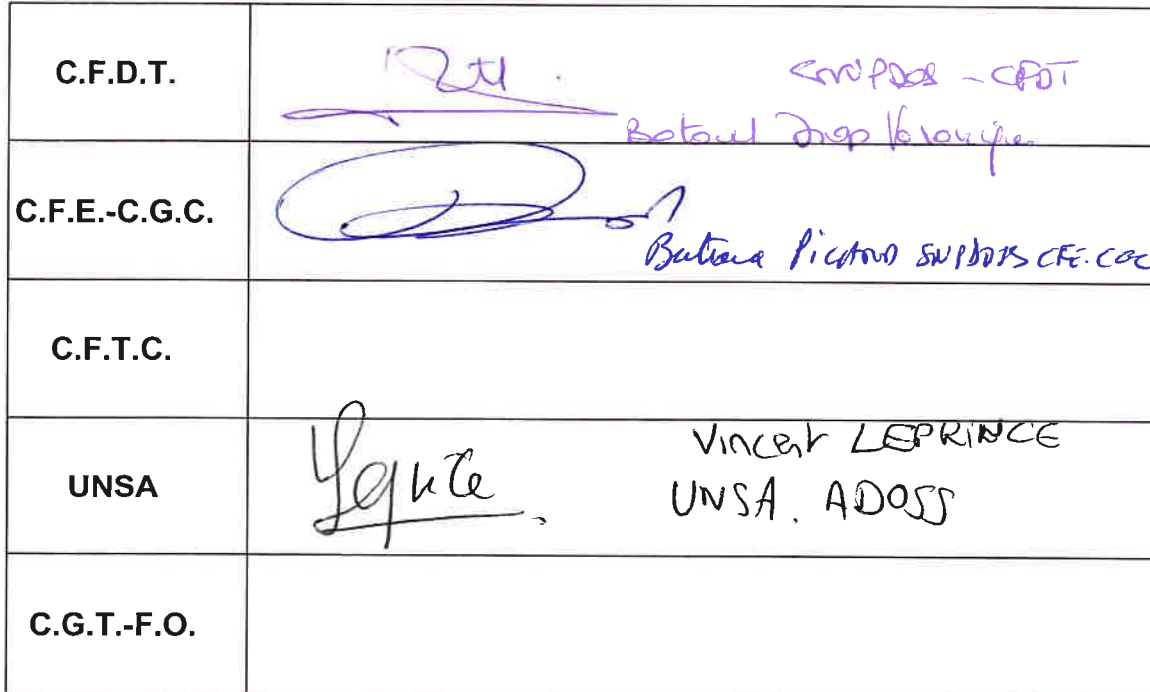 C.F.D.T.
SNPDOS - CFDT
C.F.E.-C.G.C.
PICAND SNPDOS CFE.CGC
C.F.T.C.
UNSA
Vincent LEPRINCE
UNSA. ADOSS
C.G.T.-F.O.